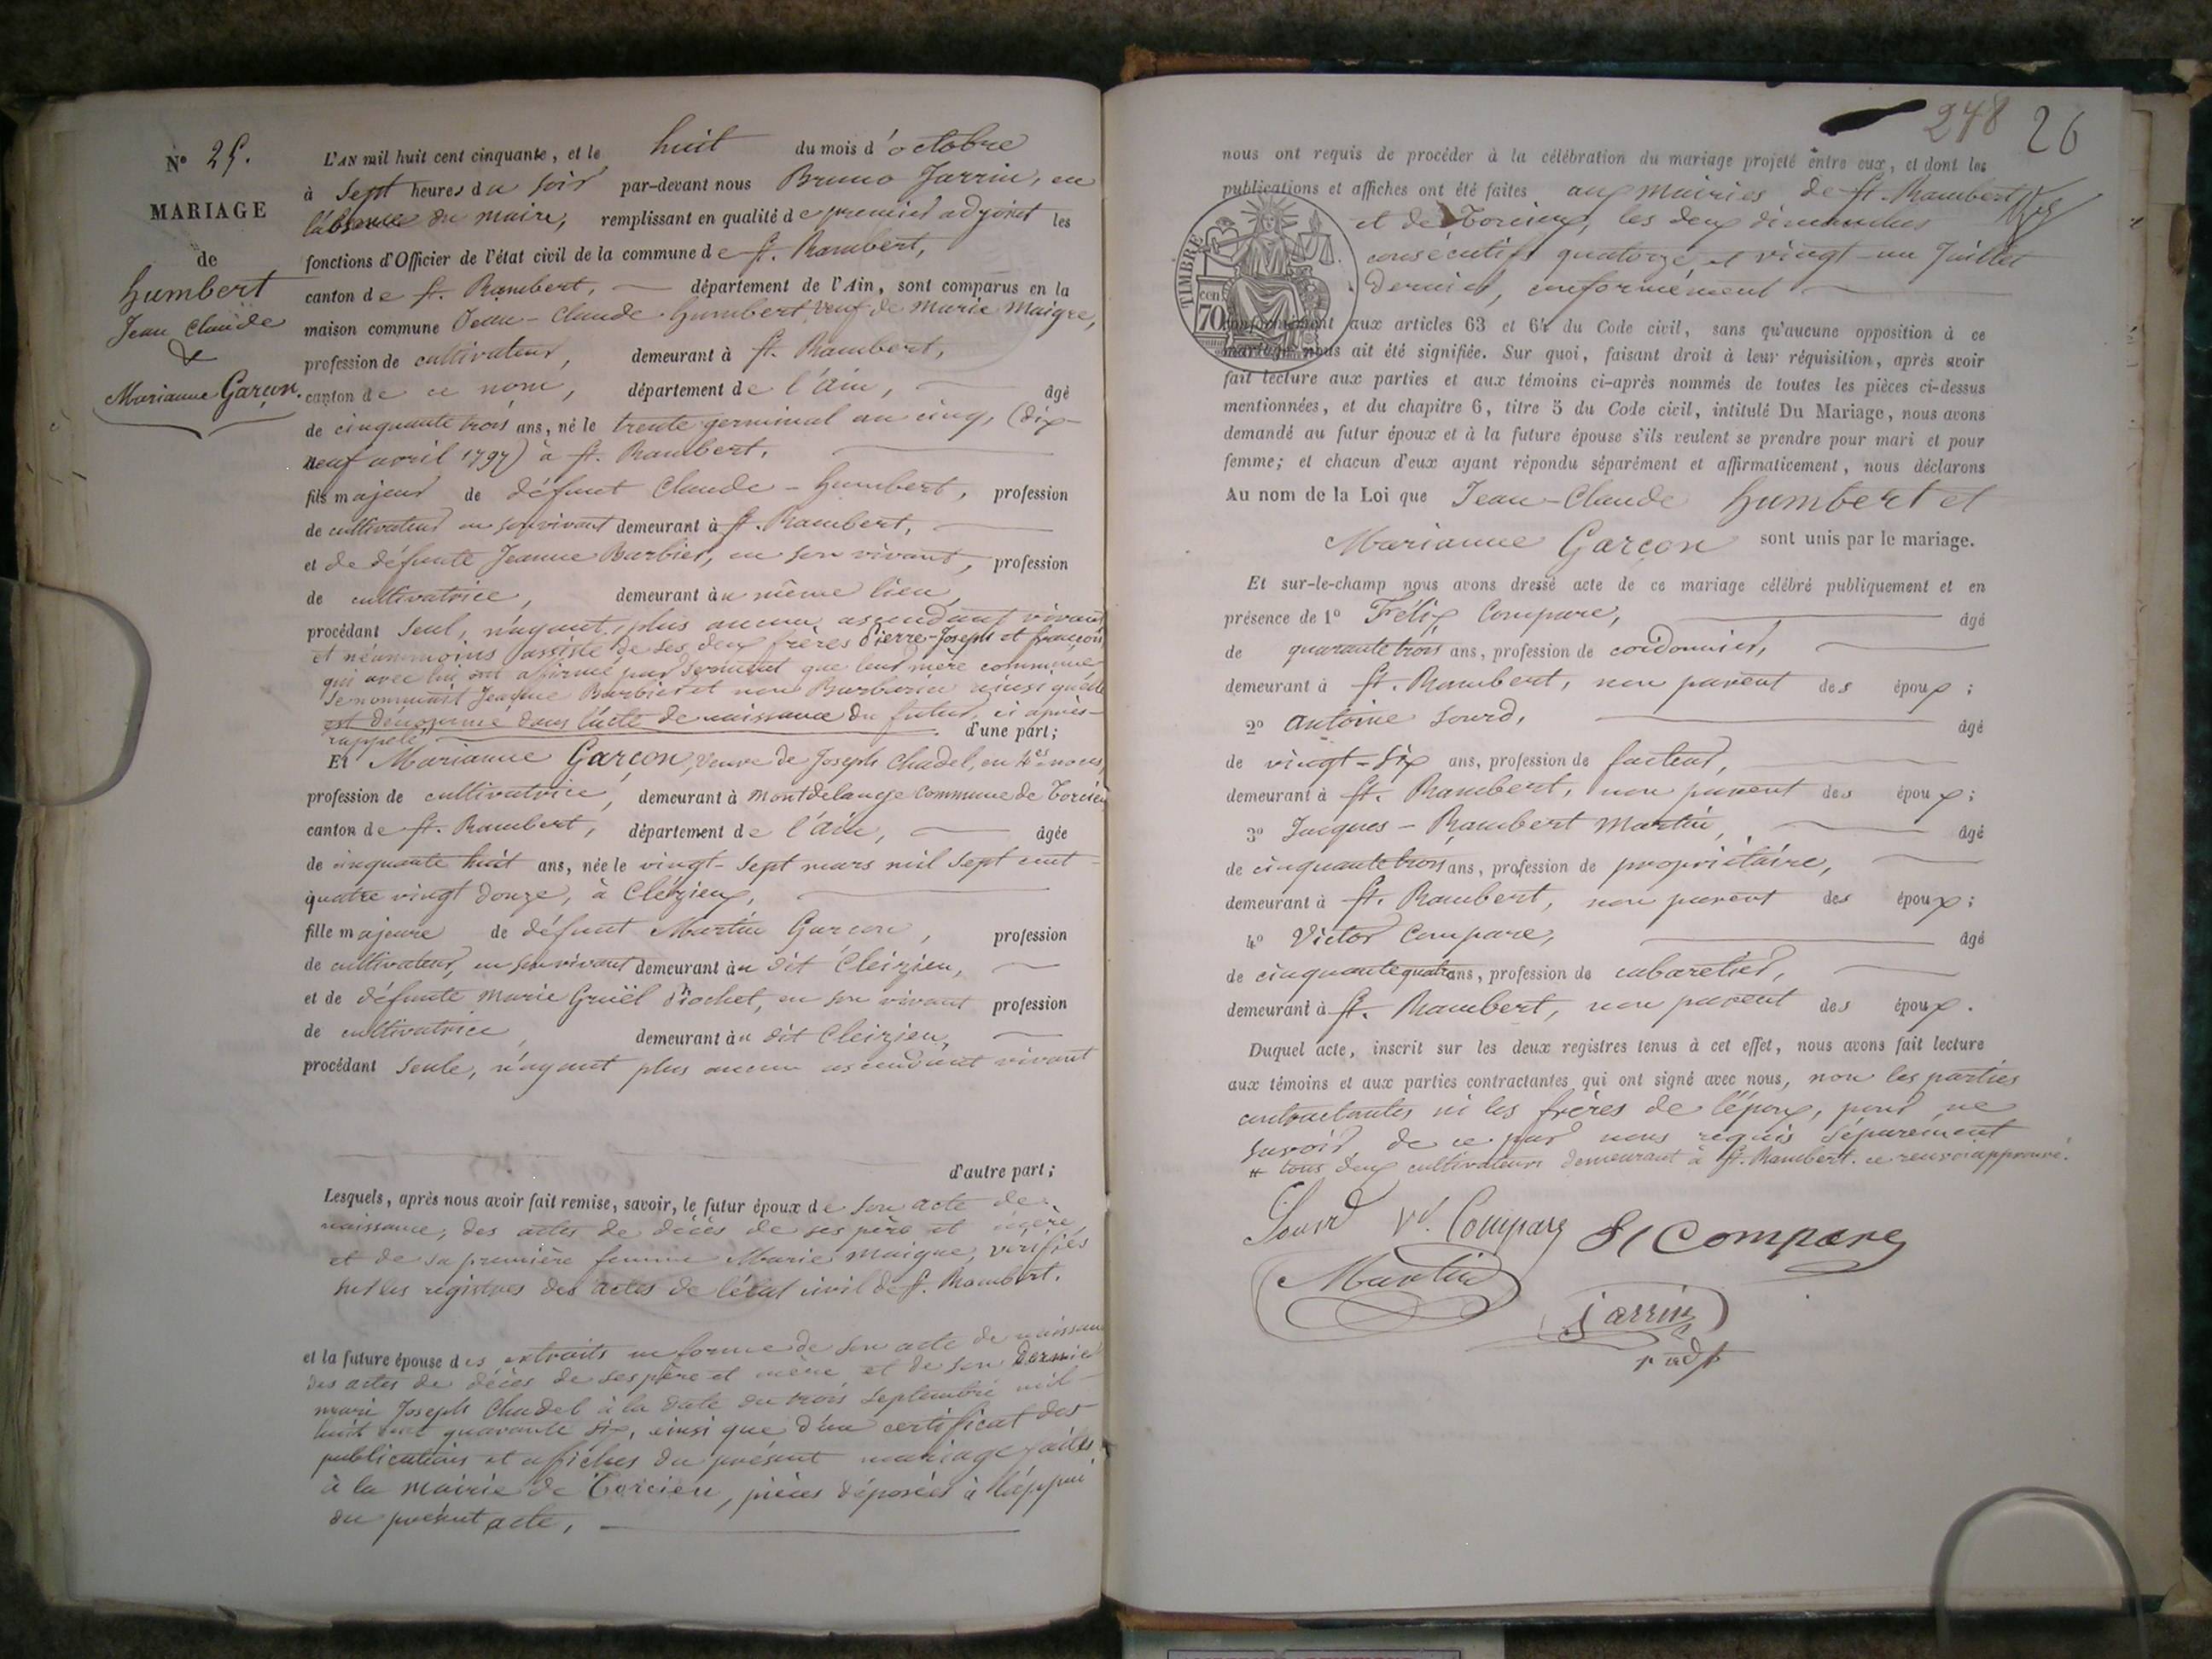 N° 25.
MARIAGE
de
Humbert
Jean Claude
&
Marianne Garçon.
L'AN mil huit cent cinquante, et le huit du mois d'octobre
à sept heures du soir par-devant nous Bruno Jarrin, en
l'absence du maire, remplissant en qualité de premier adjoint les
fonctions d'Officier de l'état civil de la commune de St. Rambert,
canton de St. Rambert, département de l'Ain, sont comparus en la
maison commune Jean-Claude Humbert veuf de Marie Maigre,
profession de cultivateur, demeurant à St. Rambert,
canton de ce nom, département de l'ain, âgé
de cinquante trois ans, né le trente germinal an cinq, (dix-
neuf avril 1797) à St. Rambert.
fils majeur de défunt Claude-Humbert, profession
de cultivateur en son vivant demeurant à St. Rambert,
et de défunte Jeanne Barbier, en son vivant, profession
de cultivatrice, demeurant au même lieu,
procédant seul, n'ayant plus aucun ascendant vivant
et néanmoins assisté de ses deux frères Pierre-Joseph et françois
qui avec lui ont affirmé par serment que leur mère commune
se nommait Jeanne Barbier et non Barbarin ainsi qu'elle
est dénommée dans l'acte de naissance du futur, ci après-
rappelé d'une part;
Et Marianne Garçon, veuve de Joseph Chadel, en 4es noces,
profession de cultivatrice, demeurant à Montdelange commune de Torcieu
canton de St. Rambert, département de l'ain, âgée
de cinquante huit ans, née le vingt-sept mars mil sept cent-
quatre vingt douze, à Cleizieu,
fille majeure de défunt Martin Garcon, profession
de cultivateur, en son vivant demeurant au dit Cleizieu,
et de défunte Marie Gruël Priochet, en son vivant profession
de cultivatrice, demeurant au dit Cleizieu,
procédant seule, n'ayant plus aucun ascendant vivant
d'autre part;
Lesquels, après nous avoir fait remise, savoir, le futur époux de son acte de
naissance, des actes de décès de ses père et mère,
et de sa première femme Marie Maigre, vérifiés
sur les registres des actes de l'état civil de St. Rambert.
et la future épouse des extraits en forme de son acte de naissance
des actes de décès de ses père et mère et de son dernier
mari Joseph Chadel à la date du trois septembre mil-
huit cent quarante six, ainsi que d'un certificat des
publications et affiches du présent mariage faites
à la mairie de Torcieu, pièces déposées à l'appui
du présent acte,
248 26
nous ont requis de procéder à la célébration du mariage projeté entre eux, et dont les
publications et affiches ont été faites aux mairies de St. Rambert
et de Torcieu, les deux dimanches
consécutifs quatorze et vingt-un Juillet
dernier, conformément
TIMBRE
cen
70
conformément aux articles 63 et 64 du Code civil, sans qu'aucune opposition à ce
mariage nous ait été signifiée. Sur quoi, faisant droit à leur réquisition, après avoir
fait lecture aux parties et aux témoins ci-après nommés de toutes les pièces ci-dessus
mentionnées, et du chapitre 6, titre 5 du Code civil, intitulé Du Mariage, nous avons
demandé au futur époux et à la future épouse s'ils veulent se prendre pour mari et pour
femme; et chacun d'eux ayant répondu séparément et affirmativement, nous déclarons
Au nom de la Loi que Jean-Claude Humbert et
Marianne Garçon sont unis par le mariage.
Et sur-le-champ nous avons dressé acte de ce mariage célébré publiquement et en
présence de 1° Félix Compare, âgé
de quarante trois ans, profession de cordonnier,
demeurant à St. Rambert, non parent des époux;
2° Antoine Sourd, âgé
de vingt-six ans, profession de facteur,
demeurant à St. Rambert, non parent des époux;
3° Jacques-Rambert Martin, âgé
de cinquante trois ans, profession de propriétaire,
demeurant à St. Rambert, non parent des époux;
4° Victor Compare, âgé
de cinquante quatre ans, profession de cabaretier,
demeurant à St. Rambert, non parent des époux.
Duquel acte, inscrit sur les deux registres tenus à cet effet, nous avons fait lecture
aux témoins et aux parties contractantes qui ont signé avec nous, non les parties
contractantes ni les frères de l'époux, pour ne
savoir, de ce par nous requis séparément
# tous deux cultivateurs demeurant à St. Rambert. ce renvoi approuvé.
Sourd Vr. Compare Compare
Martin
Jarrin